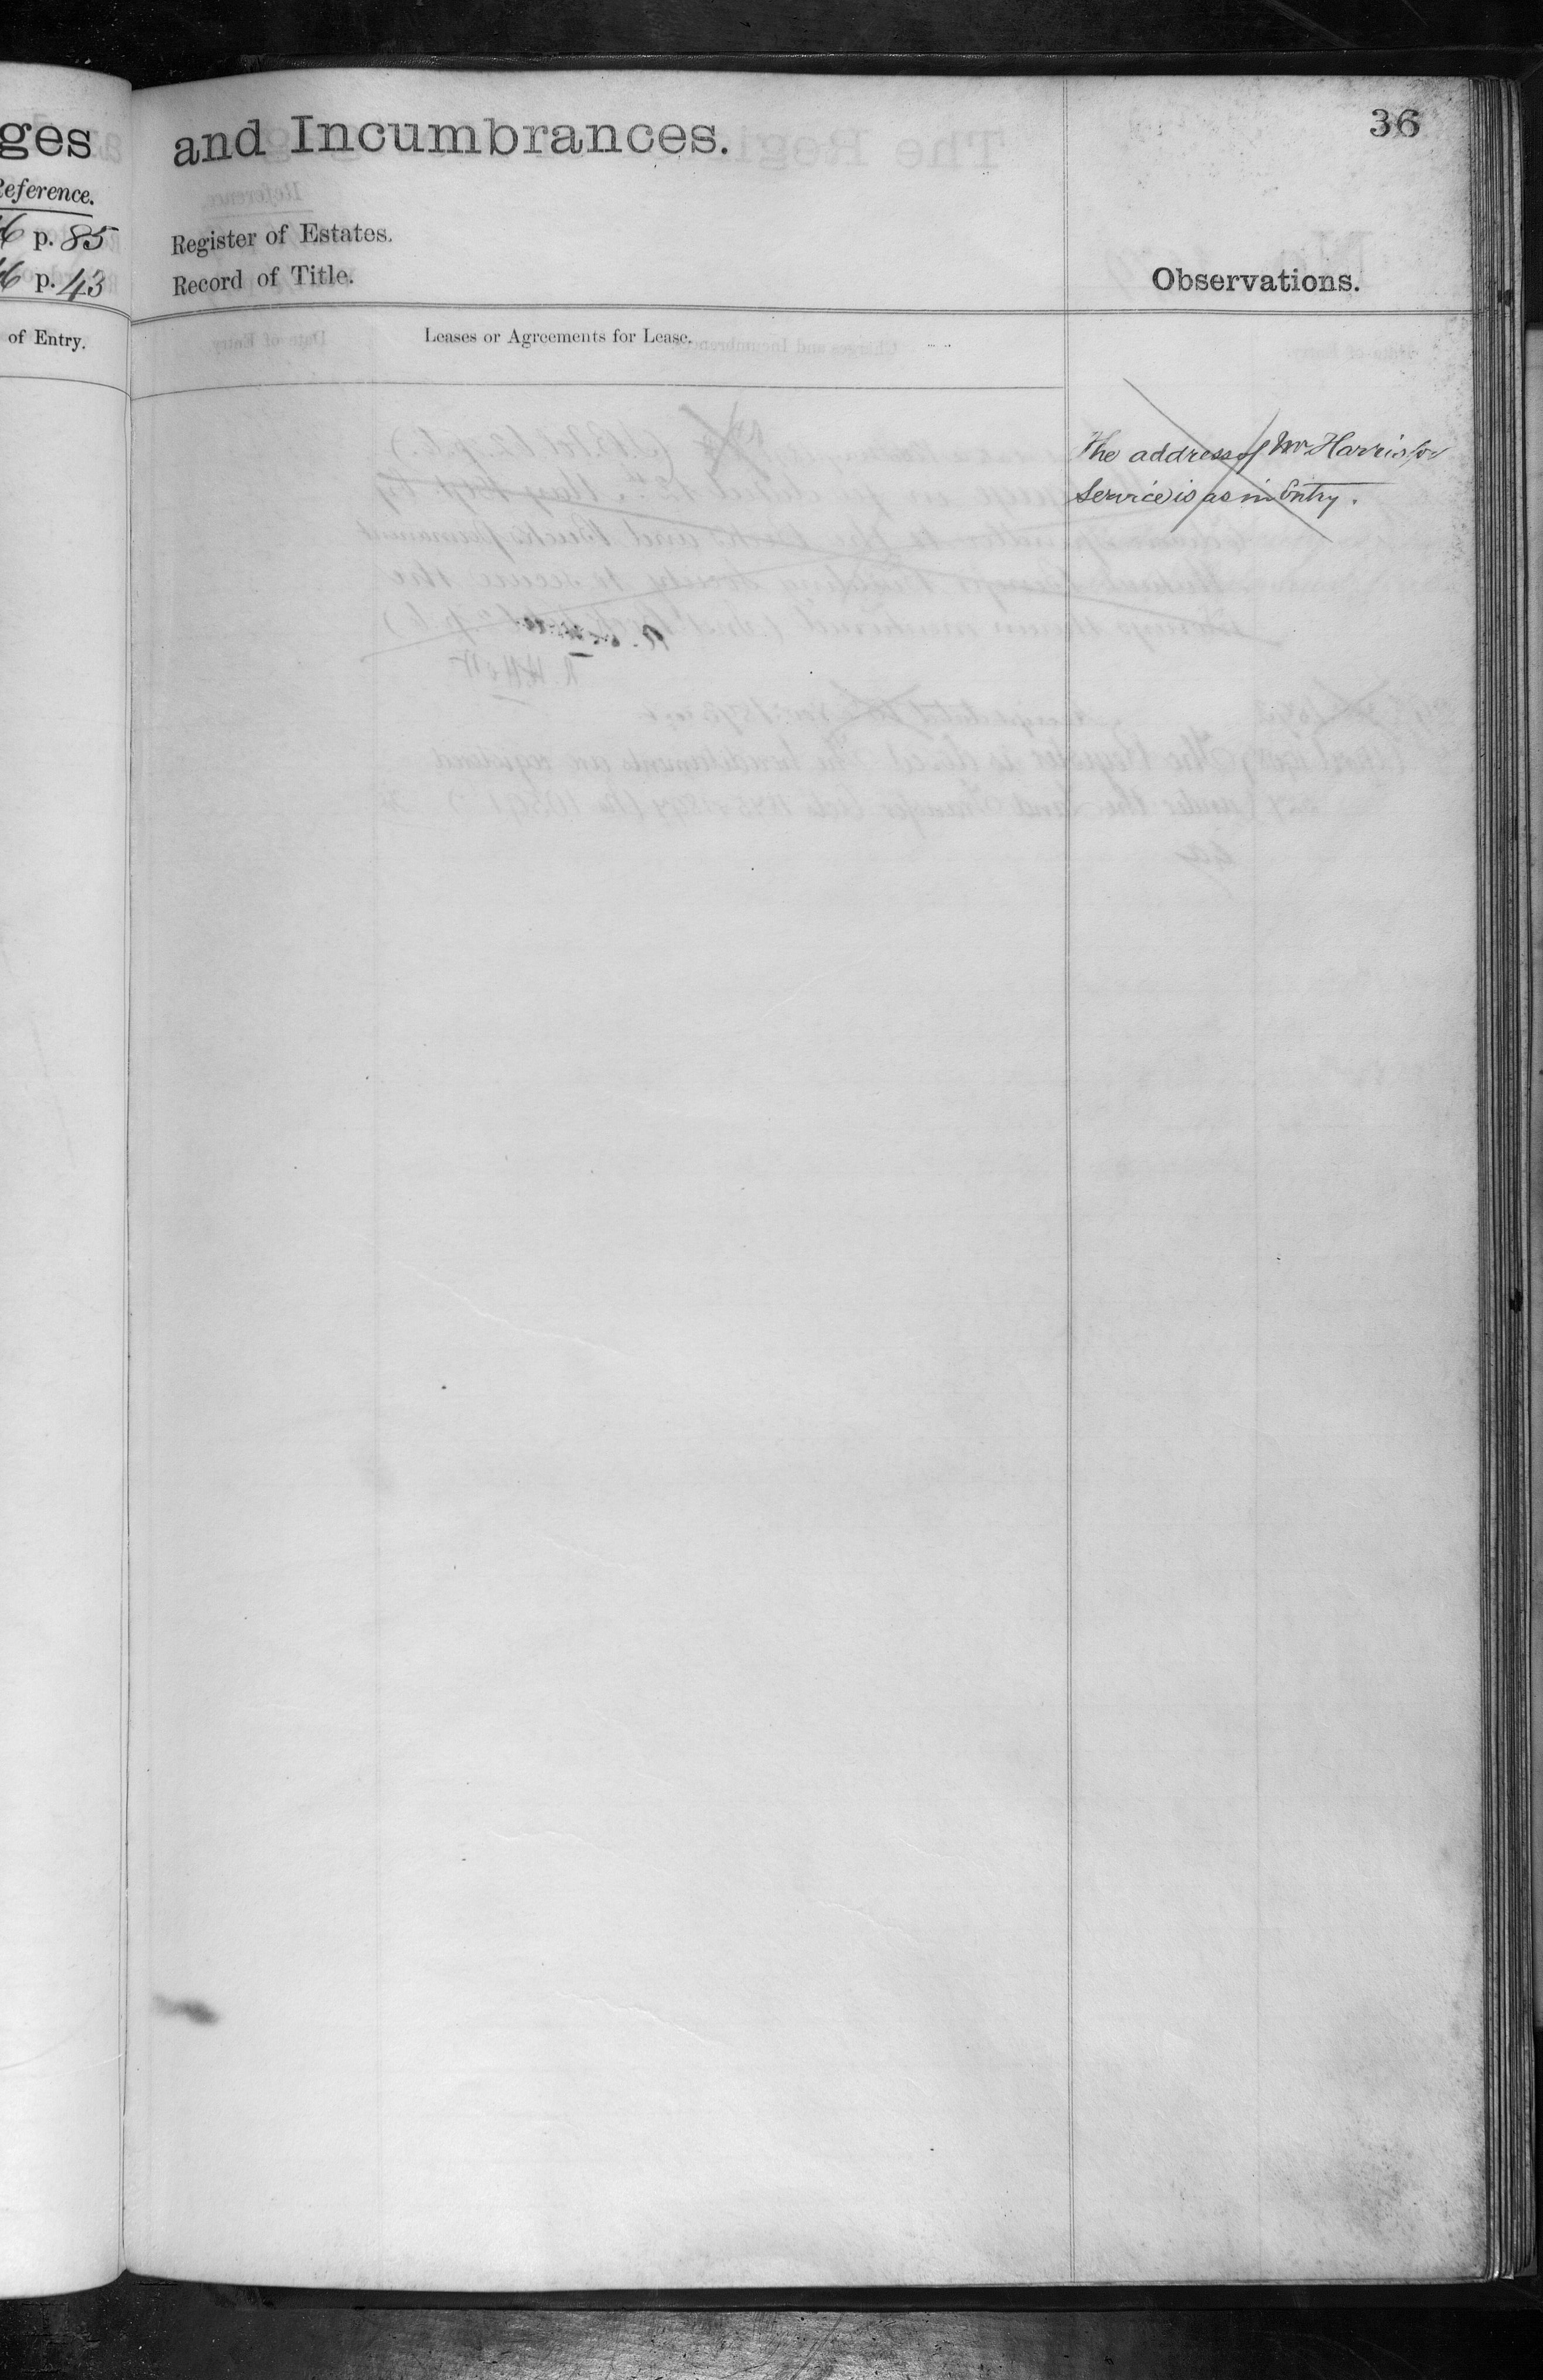 ges
Reference.
p. 85
p. 43
of Entry.
and Incumbrances.
36
Register of Estates.
Record of Title.
Observations.
Leases or Agreements for Lease.
The address of Mr Harris for
Service is as in Entry.